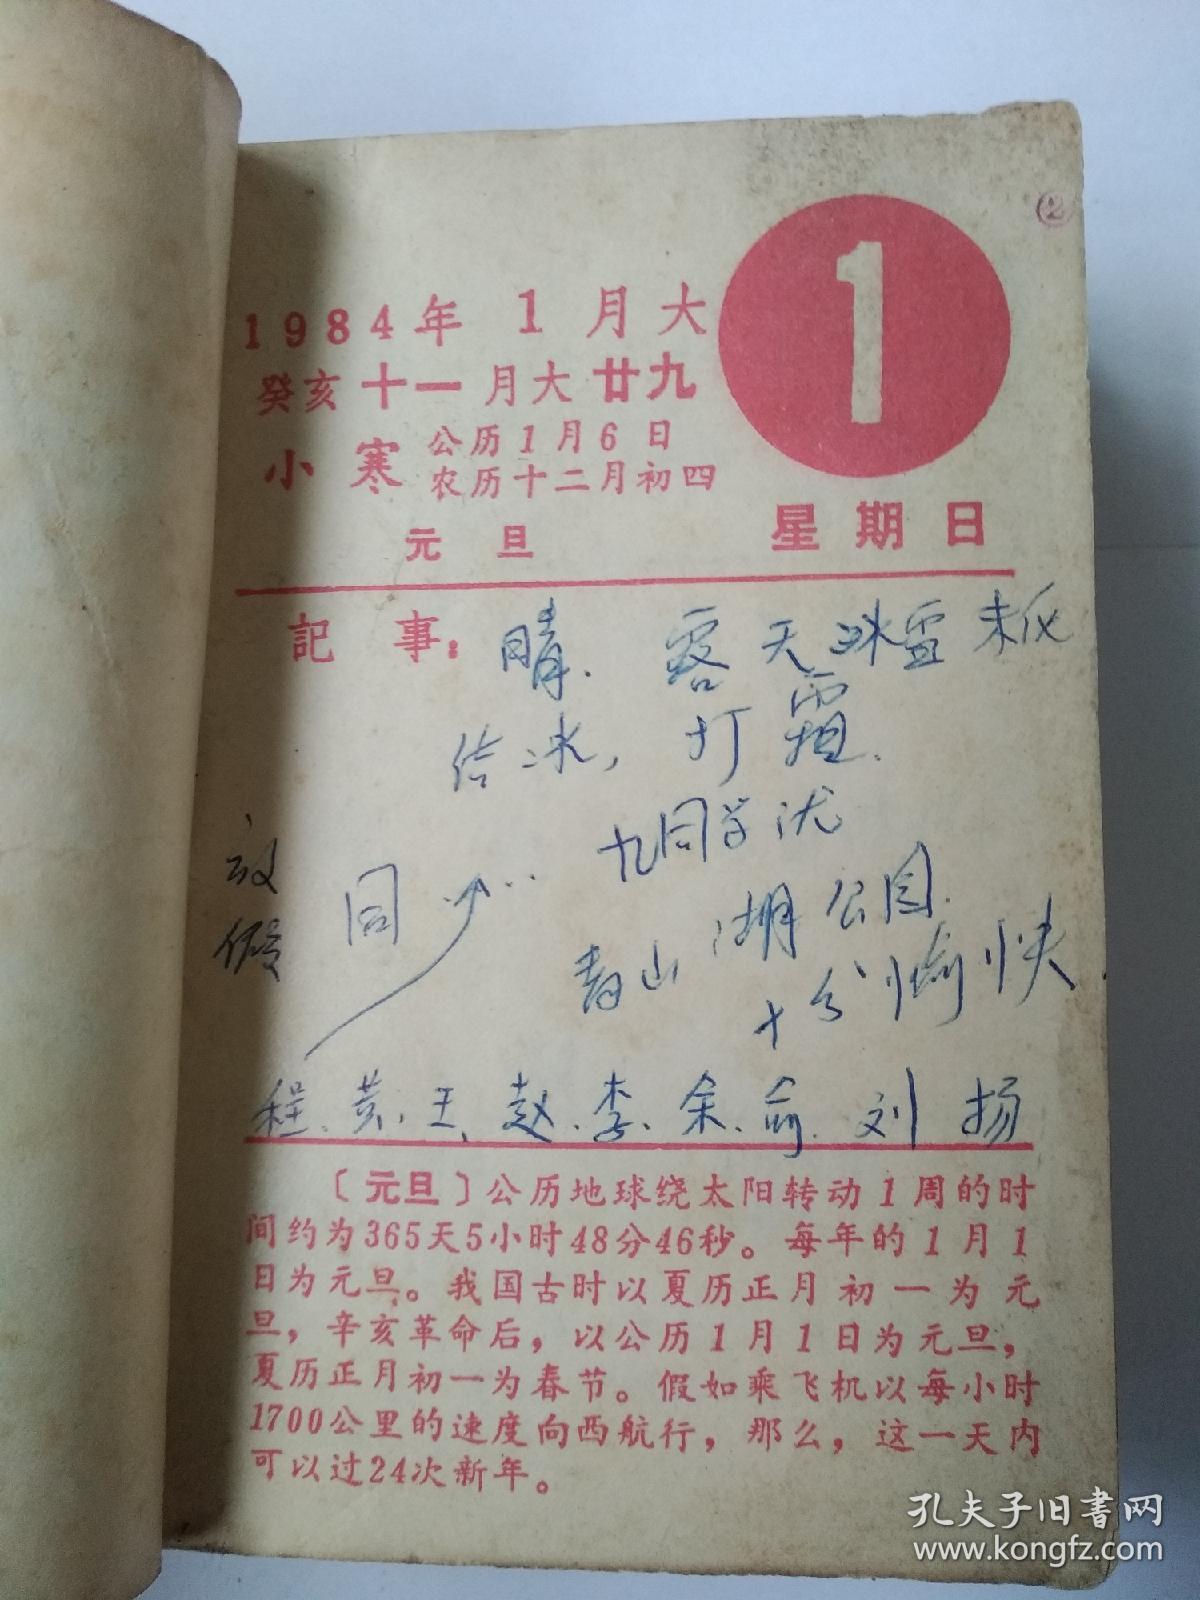 ②
1
1984年 1月大
癸亥十一月大廿九
小寒 公历1月6日
农历十二月初四
元旦
星期日
記事：晴. 露天冰雪未化
结冰，打霜.
放假
同 九同学沈
青山湖公园.
十分愉快.
程、黄、王、赵、李、余、俞、刘 扬
〔元旦〕公历地球绕太阳转动1周的时
间约为365天5小时48分46秒。每年的1月1
日为元旦。我国古时以夏历正月初一为元
旦，辛亥革命后，以公历1月1日为元旦，
夏历正月初一为春节。假如乘飞机以每小时
1700公里的速度向西航行，那么，这一天内
可以过24次新年。
孔夫子旧书网
www.kongfz.com